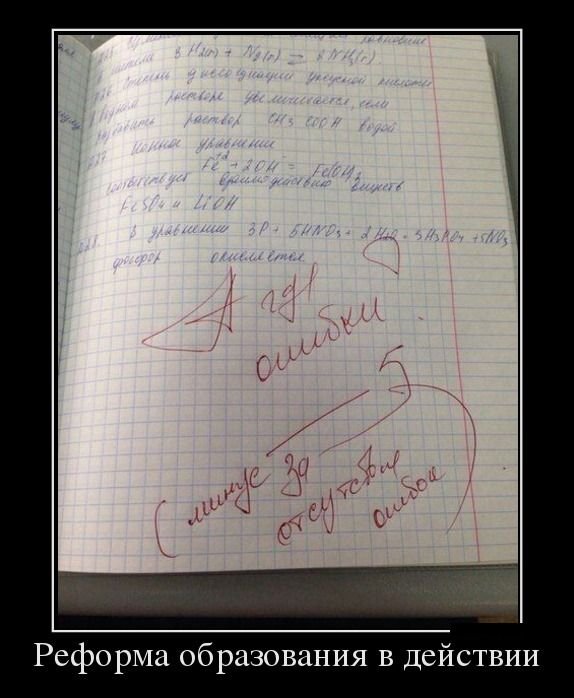 3 H2(г) + N2(г) ⇄ 2 NH3(г).
Степень диссоциации уксусной кислоты
в водном растворе увеличивается, если
разбавить раствор CH3COOH водой
Ионное уравнение
Fe+2 + 2OH- = Fe(OH)2
соответствует взаимодействию веществ
FeSO4 и LiOH
В уравнении 3P + 5HNO3 + 2H2O = 3H3PO4 + 5NO
фосфор окисляется
А где
ошибки ?
5
(минус за
отсутствие
ошибок)
Реформа образования в действии